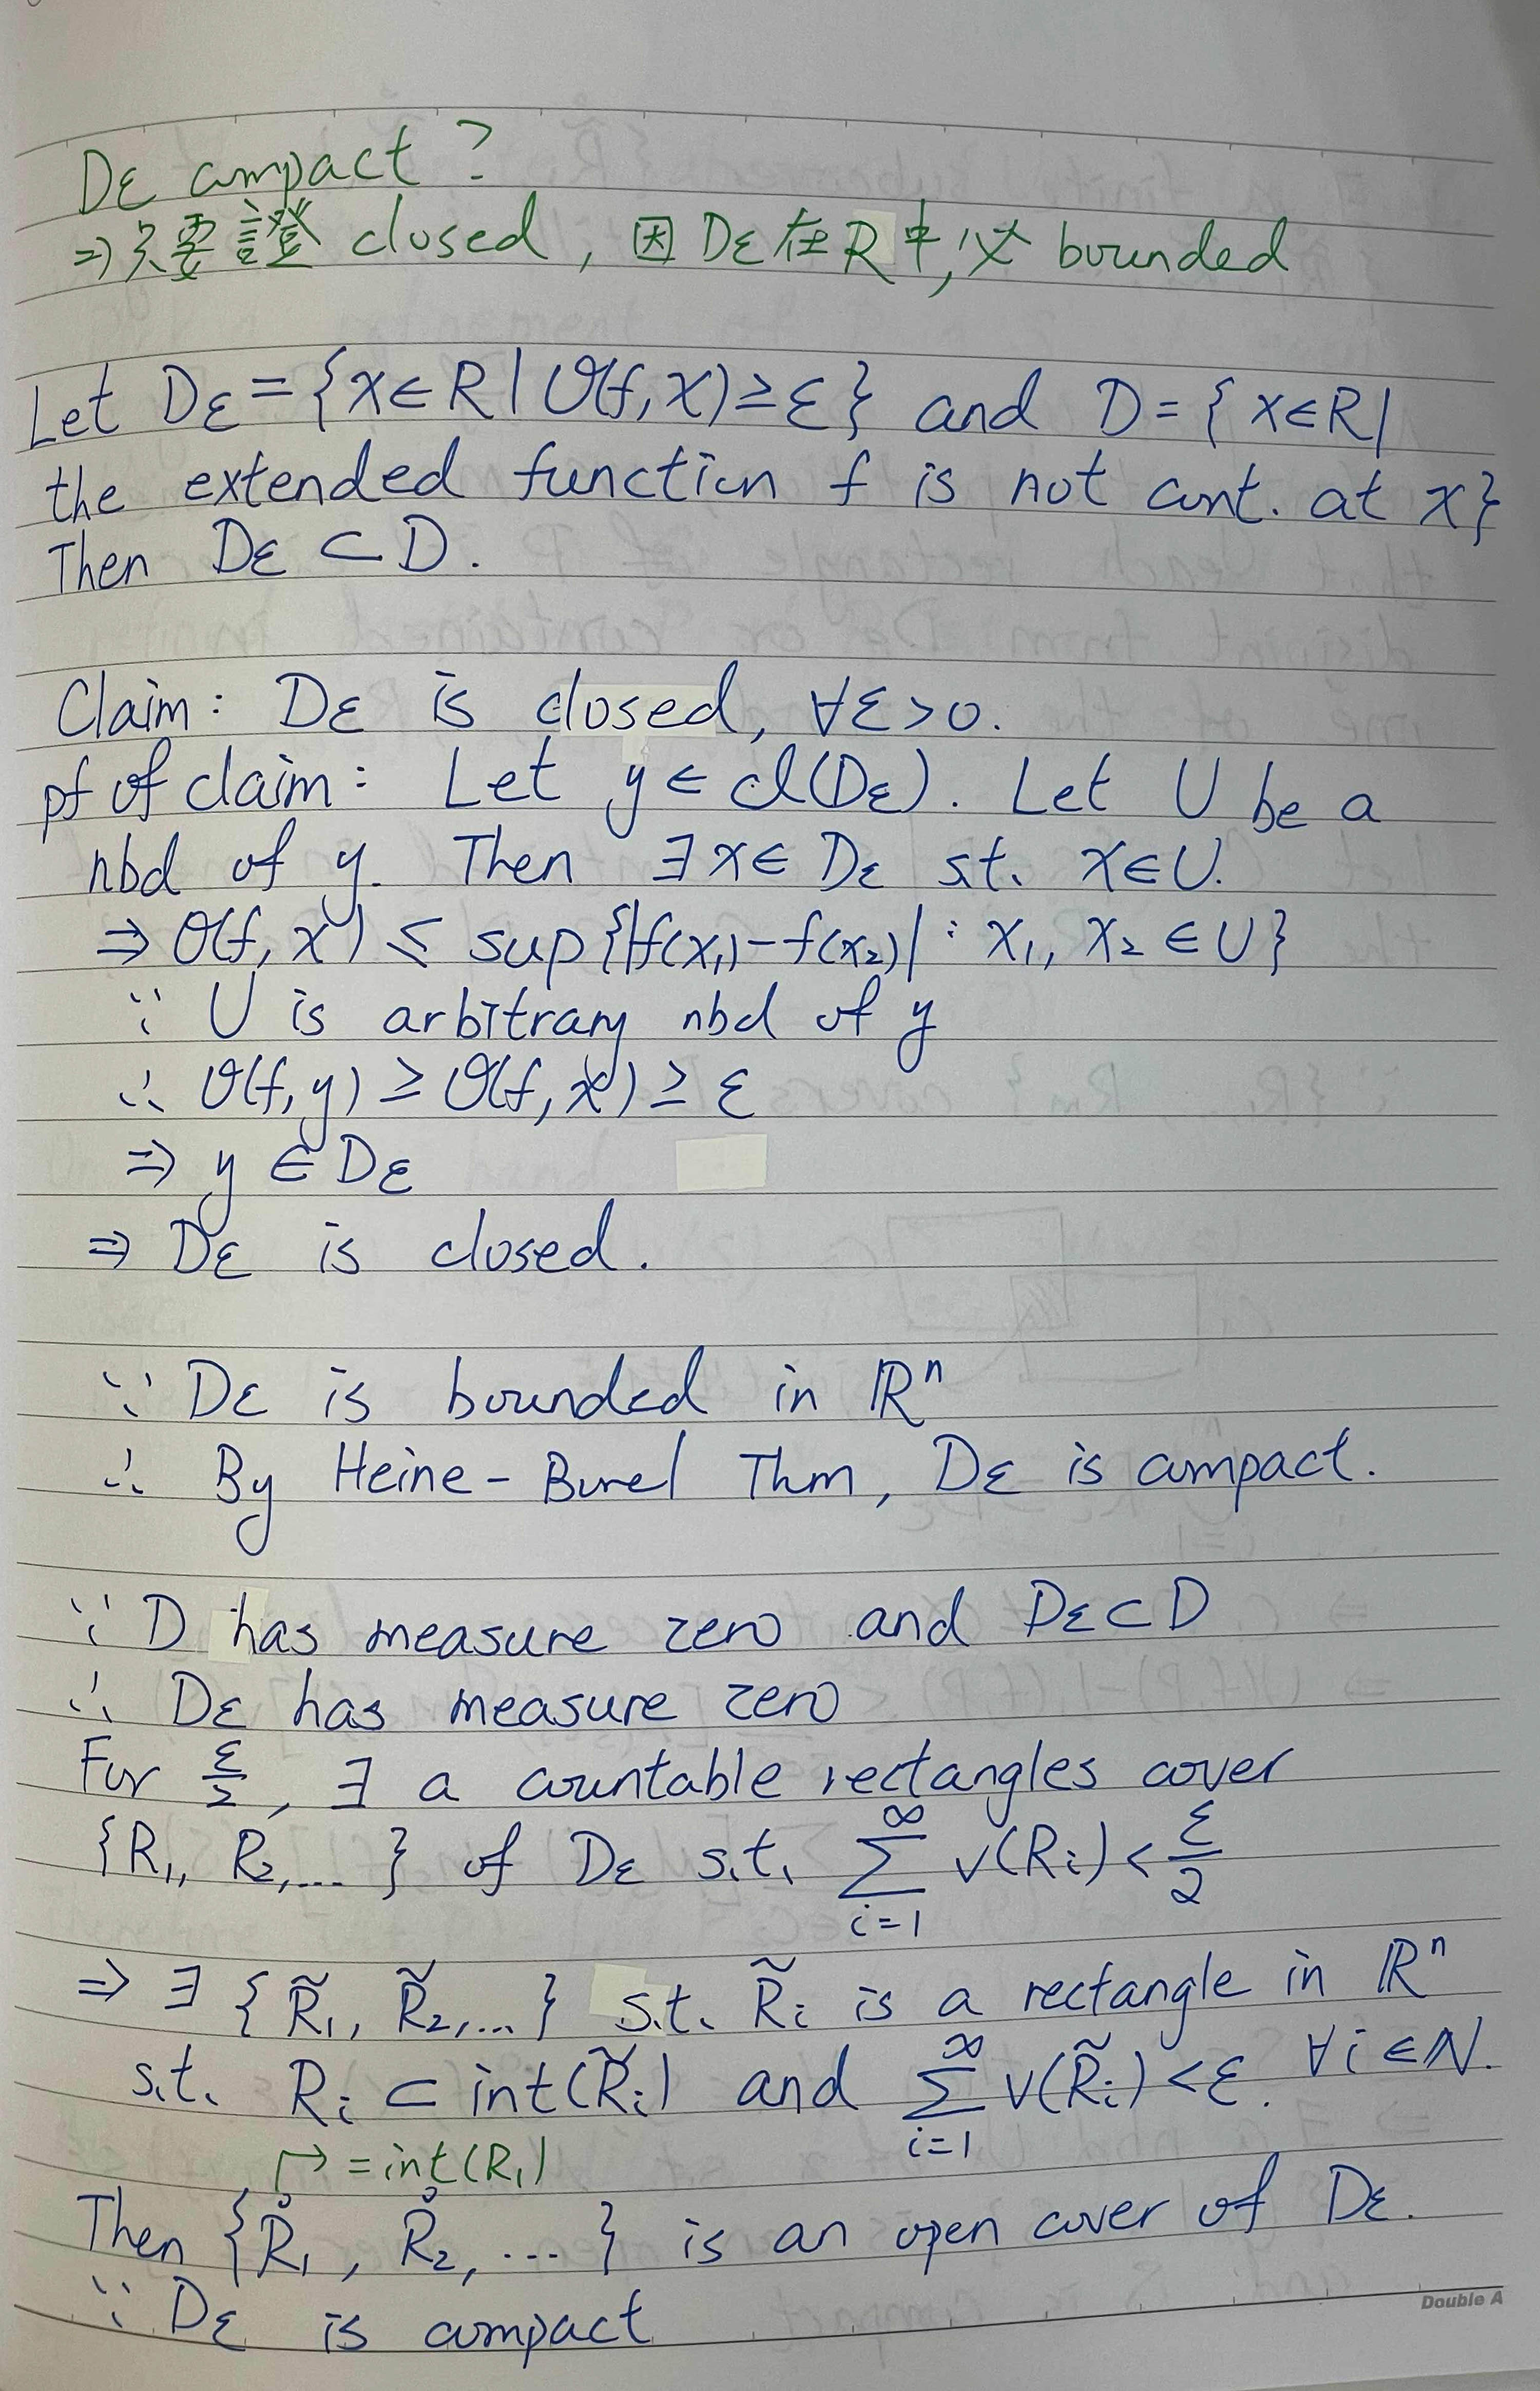 Dε compact?
⇒只要證 closed, 因 Dε在R中,必 bounded
Let Dε={x∈R|O(f,x)≥ε} and D={x∈R|
the extended function f is not cont. at x}
Then Dε⊂D.
Claim: Dε is closed, ∀ε>0.
pf of claim: Let y∈cl(Dε). Let U be a
nbd of y. Then ∃x∈Dε s.t. x∈U.
⇒ O(f,x) ≤ sup{|f(x₁)-f(x₂)| : x₁, x₂∈U}
∵ U is arbitrary nbd of y
∴ O(f,y) ≥ O(f,x) ≥ ε
⇒ y∈Dε
⇒ Dε is closed.
∵ Dε is bounded in ℝⁿ
∴ By Heine-Borel Thm, Dε is compact.
∵ D has measure zero and Dε⊂D
∴ Dε has measure zero
For ε/2, ∃ a countable rectangles cover
{R₁, R₂,...} of Dε s.t. ∑_{i=1}^{∞} v(Rᵢ)<ε/2
⇒ ∃ {R̃₁, R̃₂,...} s.t. R̃ᵢ is a rectangle in ℝⁿ
s.t. Rᵢ⊂int(R̃ᵢ) and ∑_{i=1}^{∞} v(R̃ᵢ)<ε. ∀i∈ℕ.
↱ =int(R₁)
Then {R̊₁, R̊₂, ...} is an open cover of Dε.
∵ Dε is compact
Double A